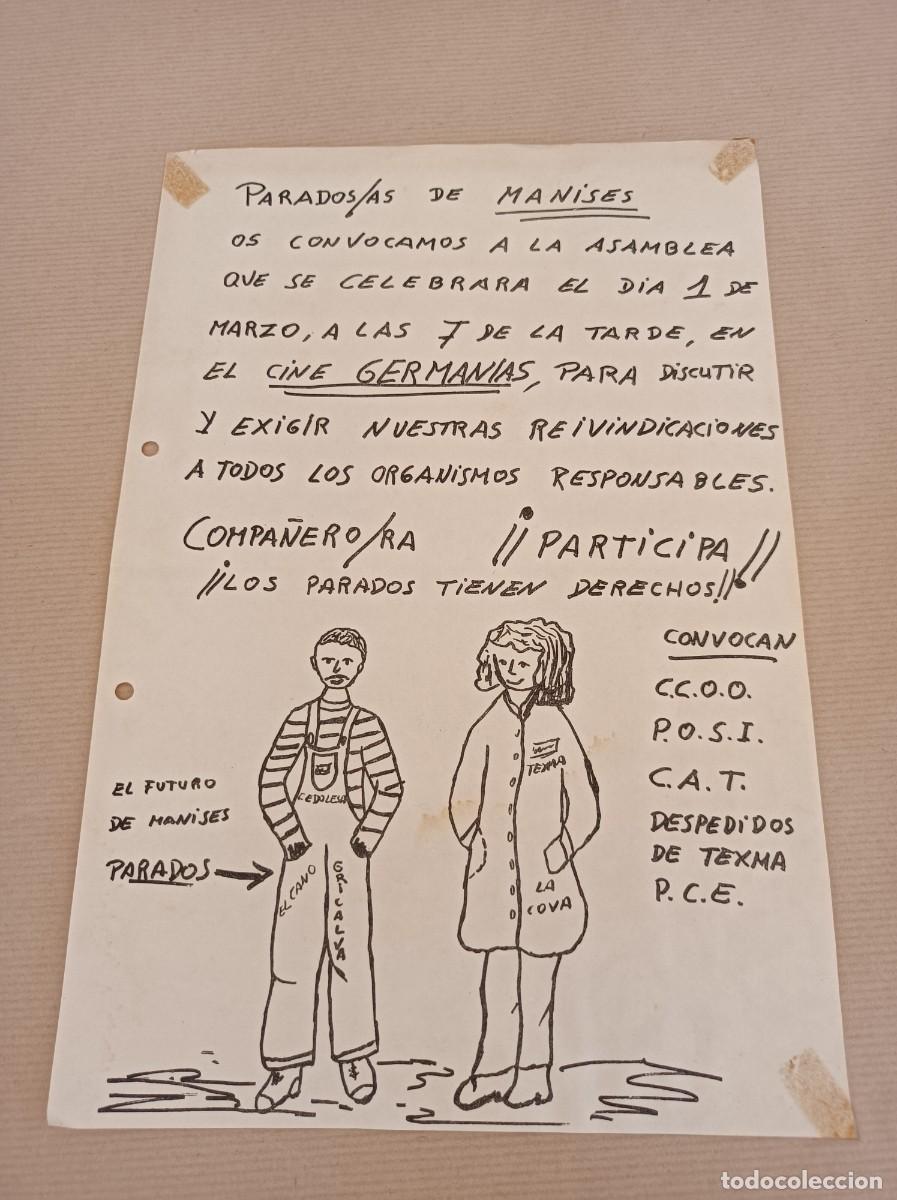 PARADOS/AS DE MANISES
OS CONVOCAMOS A LA ASAMBLEA
QUE SE CELEBRARA EL DIA 1 DE
MARZO, A LAS 7 DE LA TARDE, EN
EL CINE GERMANIAS, PARA DISCUTIR
Y EXIGIR NUESTRAS REIVINDICACIONES
A TODOS LOS ORGANISMOS RESPONSABLES.
COMPAÑERO/RA ¡¡PARTICIPA!!
¡¡LOS PARADOS TIENEN DERECHOS!!
CONVOCAN
C.C.O.O.
P.O.S.I.
C.A.T.
DESPEDIDOS
DE TEXMA
P.C.E.
EL FUTURO
DE MANISES
PARADOS
CEDOLESA
EL CANO
GRICALVA
TEXMA
LA
COVA
todocoleccion